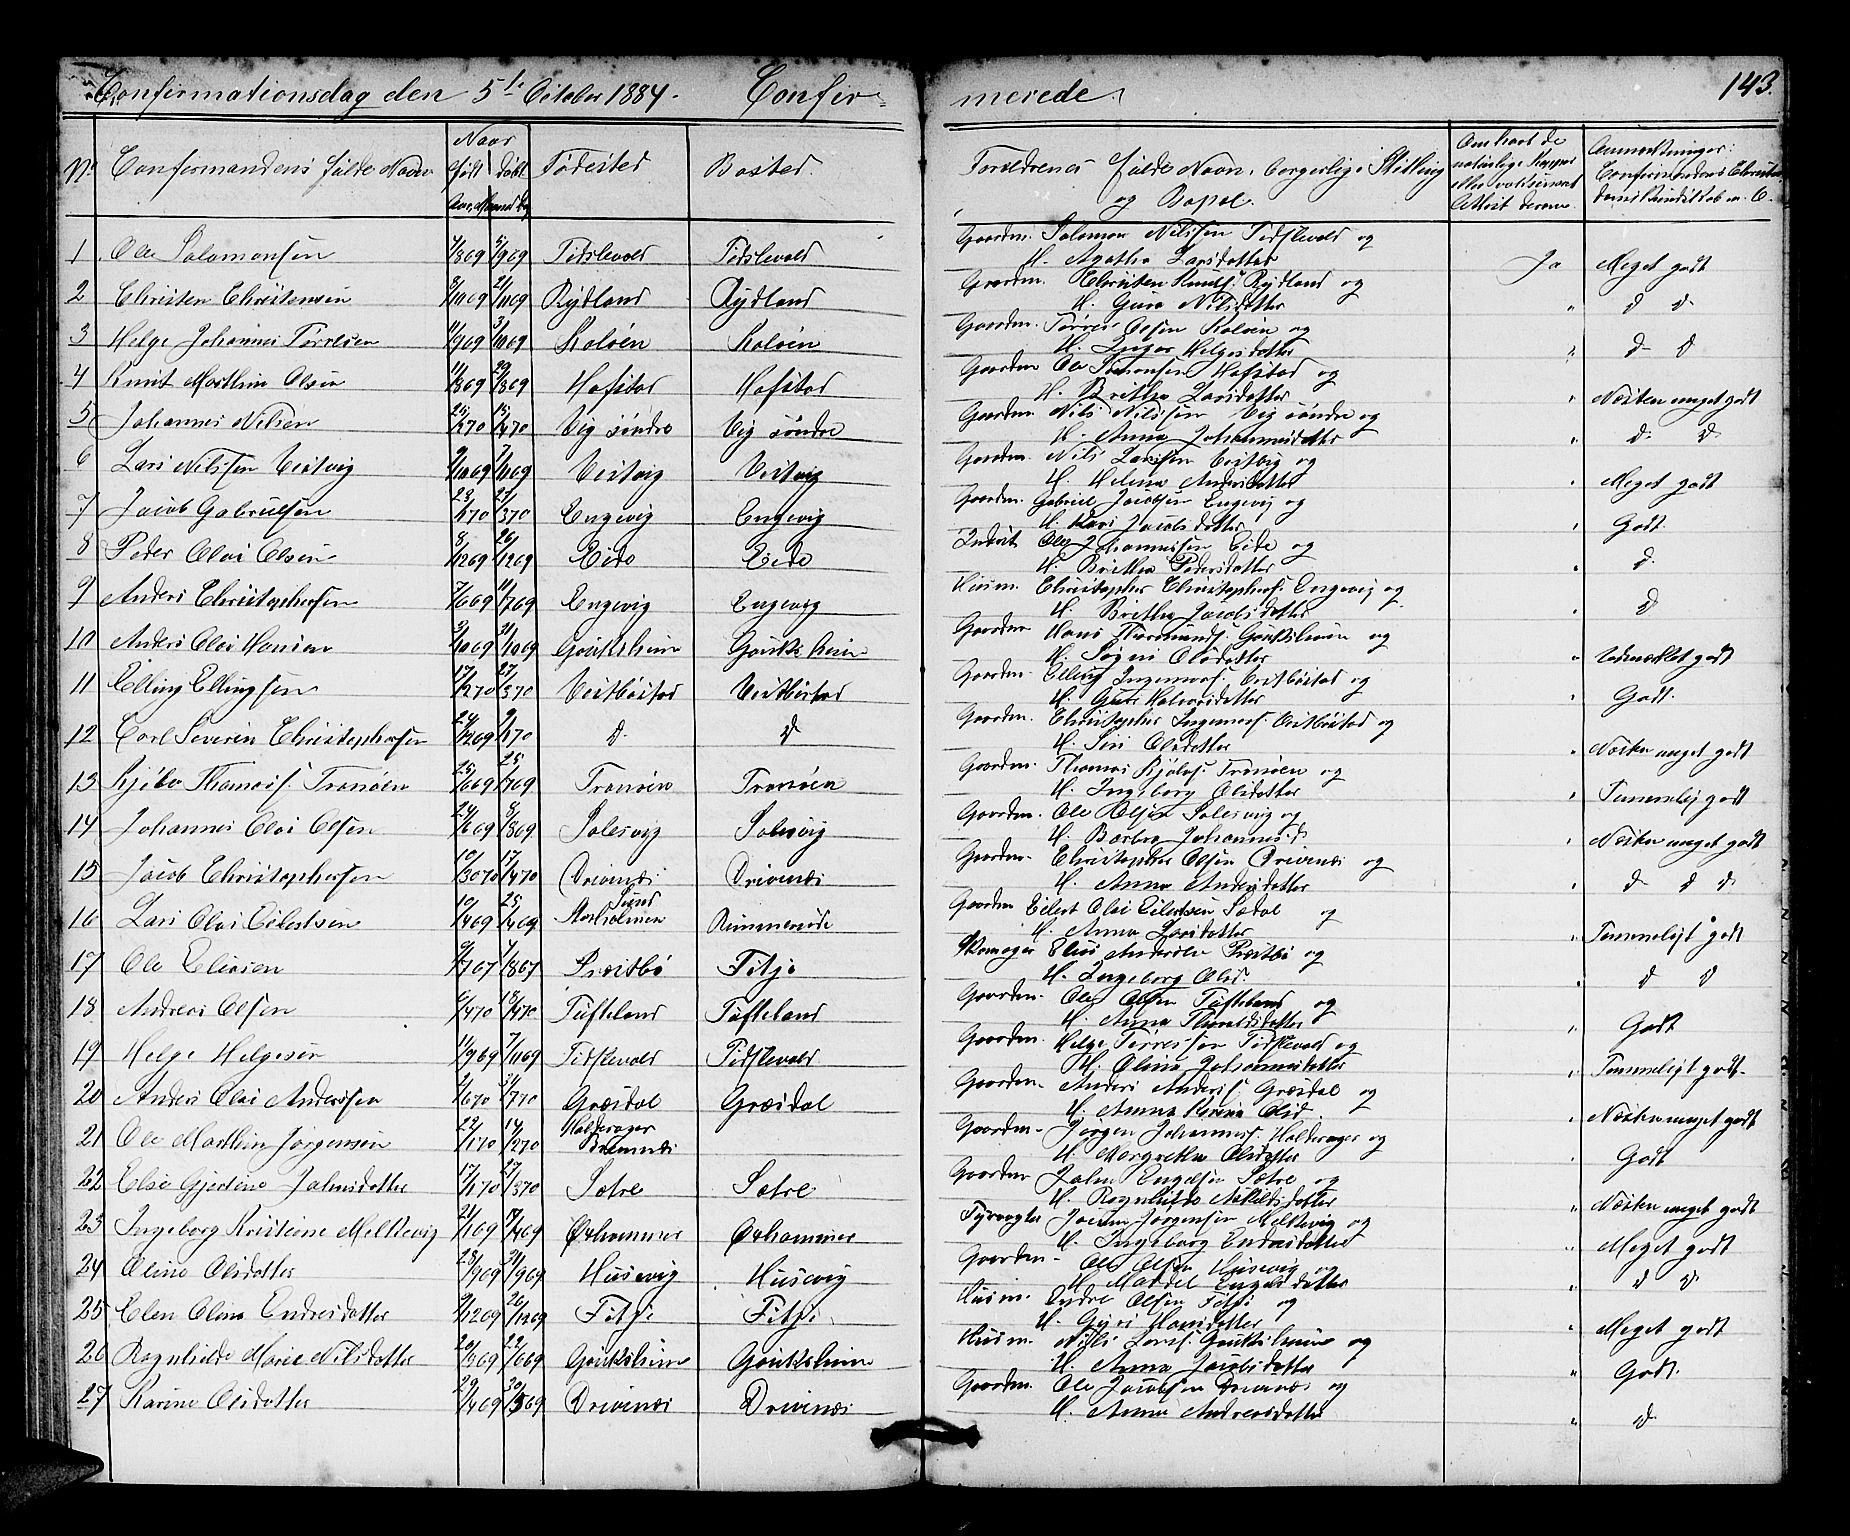 Confirmationsdag den 5te October 1884. Confir- merede. 143.
No Confirmandens fulde Navn Naar født døbt Aar, Maaned Dag Fødested Bosted Forældrenes fulde Navn, borgerlige Stilling og Bopæl. Om havt de naturlige Kopper eller vaksineret Attest derom Anmærkninger: Confirmandens Christendomskundskab m. O.
1 Ole Salomonsen 4/869 5/969 Tidslevold Tidslevold Gaardm. Salomon Nilssen Tidslevold og
H. Agatha Larsdatter Ja Meget godt
2 Christen Christensen 8/1069 21/1069 Rydland Rydland Gaardm. Christen Knuds. Rydland og
H. Guro Nilsdatter " d d
3 Helge Johannes Tørresen 11/969 3/1069 Kaløen Kaløen Gaardm. Tørres Olsen Kaløen og
H. Helgesdatter " d d
4 Knut Marthin Olsen 11/869 29/869 Hafstad Hafstad Gaardm. Ole Hafstad og
H. Britha Larsdatter " Næsten meget godt
5 Johannes Nilsen 25/270 15/470 Vig søndre Vig søndre Gaardm. Nils Nilssen Vig søndre og
H. Anna Johannesdatter " d d
6 Lars Nilssen Vestvig 9/1069 Vestvig Vestvig Gaardm. Nils Larssen Vestvig og
H. Helena Andersdatter " Meget godt
7 Jacob Gabrielsen 23/170 27/370 Engevig Engevig Gaardm. Gabriel Jacobsen Engevig og
H. Kari Jacobsdatter " Godt
8 Peder Olai Olsen 8/1269 26/1269 Eide Eide Inderst Ole Johannessen Eide og
H. Britha Pedersdatter " d
9 Anders Christophersen 7/669 11/769 Engevig Engevig Husm. Christopher Christophers. Engevig og
H. Britha Jacobsdatter " d
10 Anders Olai Hansen 3/1069 21/1069 Gouksheim Goukshein Gaardm Hans Thormunds. Gouksheim og
H. Olsdatter " Udmærket godt
11 Elling Ellingsen 17/270 27/370 Vestbøstad Vestbøstad Gaardm. Elling Ingemars. Vestbøstad og
H. Guri Halvorsdatter " Godt.
12 Carl Severin Christophersen 24/1269 9/170 d d Gaardm. Christopher Ingemars. Vestbøstad og
H. Siri Olsdatter " Næsten meget godt
13 Thomas. Tranøen 25/669 25/769 Tranøen Tranøen Gaardm. Thomas Tranøen og
H. Ingeborg Olsdatter " Temmelig godt
14 Johannes Olai Olsen 24/669 8/869 Salesvig Salesvig Gaardm. Ole Olsen Salesvig og
H. Barbra Johannesd. " Næsten meget godt
15 Jacob Christophersen 10/370 17/470 Drivenæs Drivenæs Gaardm. Christopher Olsen Drivenæs og
H. Anna Andersdatter " d d d
16 Lars Olai Eilertsen 10/469 25/469 Sund Marholmen Rimmereide Gaardm Eilert Olai Eilertsen Sædal og
H. Anna Larsdatter " Temmeligt godt
17 Ole Eliasen 9/767 4/867 Præstbø Fitje Skomager Elias Andersen Præstbø og
H. Ingeborg Olsd. " d d
18 Andreas Olsen 6/470 18/470 Tufteland Tufteland Gaardm. Ole Olsen Tufteland og
H. Anna Thoraldsdatter " Godt
19 Helge Helgesen 11/969 7/1169 Tidslevold Tidslevold Gaardm. Helge Tørressen Tidslevold og
H. Olina Johannesdatter " Temmeligt godt.
20 Anders Olai Anderssen 2/670 31/770 Græsdal Græsdal Gaardm. Anders Anders. Græsdal og
H. Anna Karina Olsd. " Næsten meget godt
21 Ole Marthin Jørgensen 22/170 14/270 Halderager Bremnæs Gaardm. Jørgen Johannes. Halderager og
H. Margretha Olsdatter " Godt
22 Else Gjertine Johnsdatter 17/170 27/370 Sætre Sætre Gaardm John Engelsen Sætre og
H. Ragnhilda datter " Næsten meget godt
23 Ingeborg Kristine Meltevig 21/169 17/469 Ørhammer Ørhammer Fyrvogter Jørgensen Meltevig og
H. Ingeborg Endresdatter " Meget godt
24 Olina Olsdatter 23/969 31/969 Husevig Husevig Gaardm. Ole Olsen Husevig og
H. Mardel Engelsdatter " d d
25 Elen Olina Endresdatter 9/1269 26/1269 Fitje Fitje Husm. Endre Olsen Fitje og
H. Guri Hansdatter " Meget godt
26 Ragnhilde Marie Nilsdatter 20/369 22/669 Gouksheim Gouksheim Husm. Nils Lars. Gouksheim og
H. Anna Jacobsdatter " Godt.
27 Karine Olsdatter 29/469 30/569 Drivenæs Drivenæs Gaardm. Ole Jacobsen Drivenæs og
H. Anna Andreasdatter " d